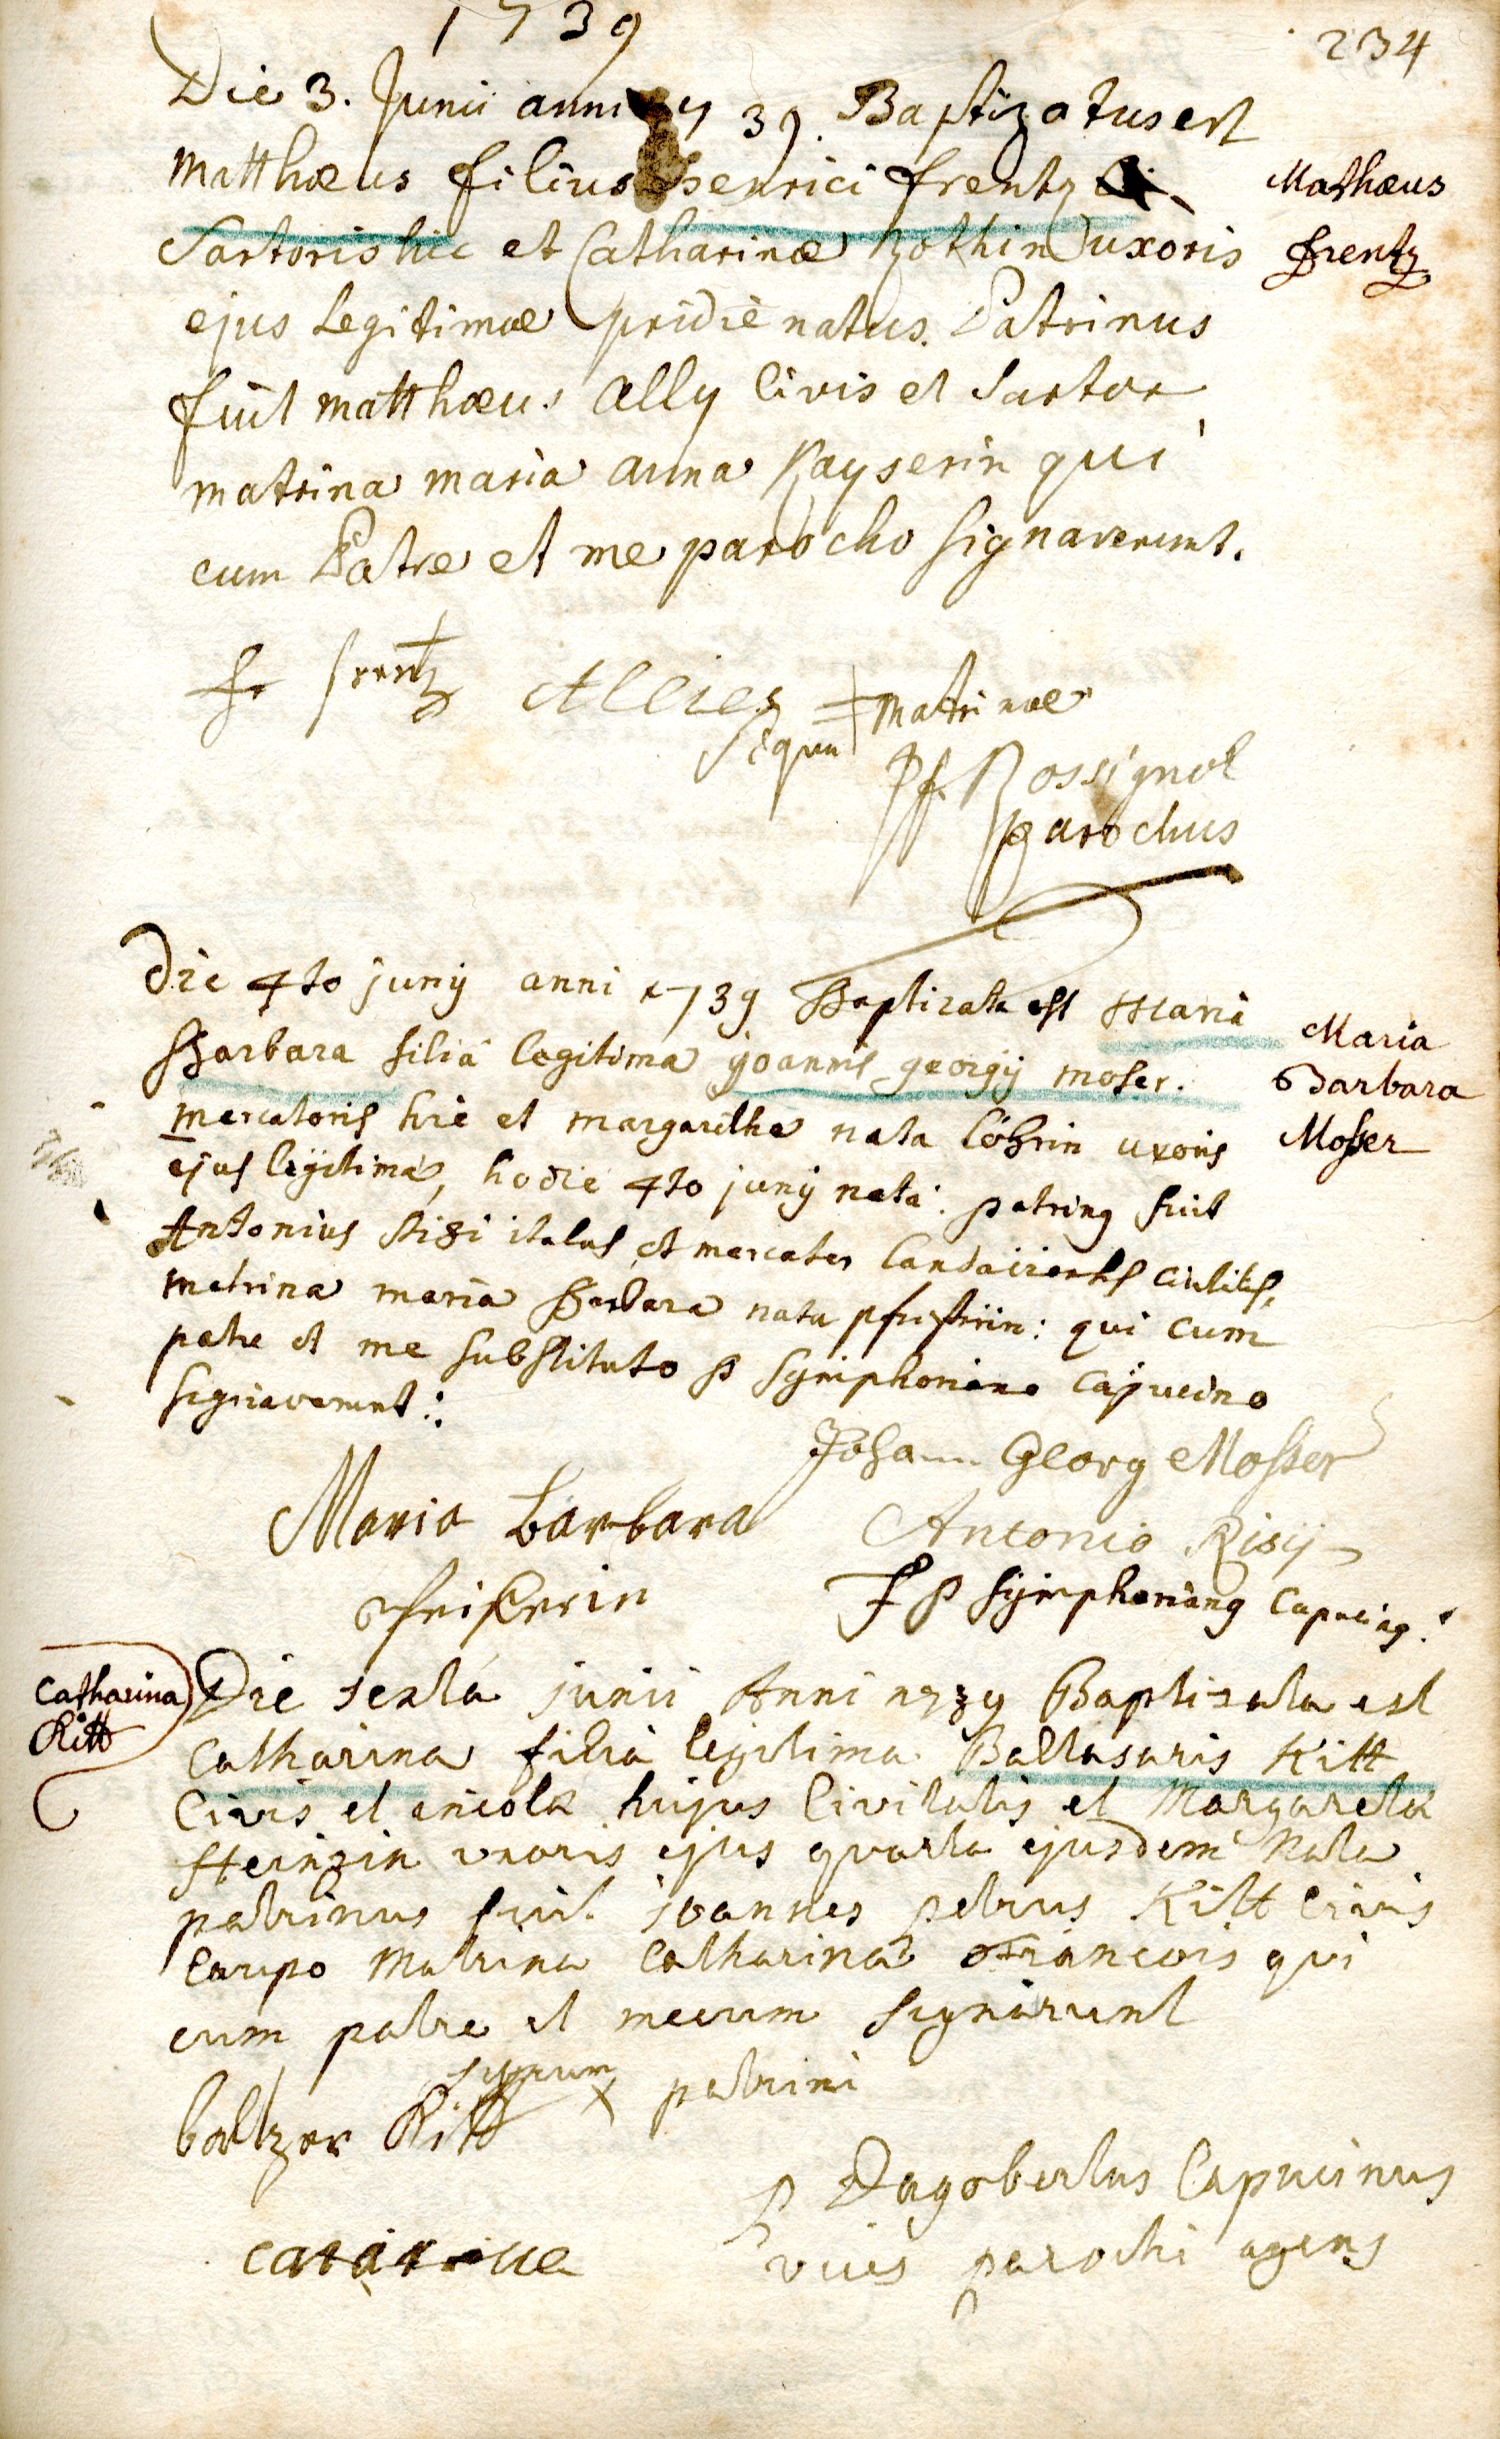 1739
234
Die 3. Junii anni 1739. Baptizatus est
Matthæus filius Henrici frentz
Mathæus
frentz
Sartoris hic et Catharinæ Zothin uxoris
ejus Legitimæ pridie natus. Patrinus
fuit matthæus Ally Civis et Sartor
matrina maria anna Kayserin qui
cum Patre et me parocho signaverunt.
frentz Allies signum + matrinæ
Pf. Rossignol
parochus
Die 4to junij anni 1739 Baptizata est Maria
Barbara filia legitima joannis georgij moser.
Maria
Barbara
Mosser
mercatoris hic et margarethæ nata löhrin uxoris
ejus legitima, hodie 4to junij nata: patrinus fuit
Antonius Risi italus et mercator
matrina maria Barbara nata : qui cum
patre et me substituto P Symphoriano Capucino
signaverunt:
Johann Georg Mosser
Maria Barbara
Antonio Risij
F P Symphorianus Capucinus.
Catharina
Ritt
Die sexta junii Anni 1739 Baptizata est
Catharina filia legitima Baltasaris Ritt
Civis et incolæ hujus Civitatis et Margaretæ
Steinzin uxoris ejus quarta ejusdem Nata
patrinus fuit joannes petrus Ritt Civis
Matrina Catharina Francois qui
cum patre et mecum signarunt
signum x patrini
baltzer Ritt
P Dagobertus Capucinus
vices parochi agens